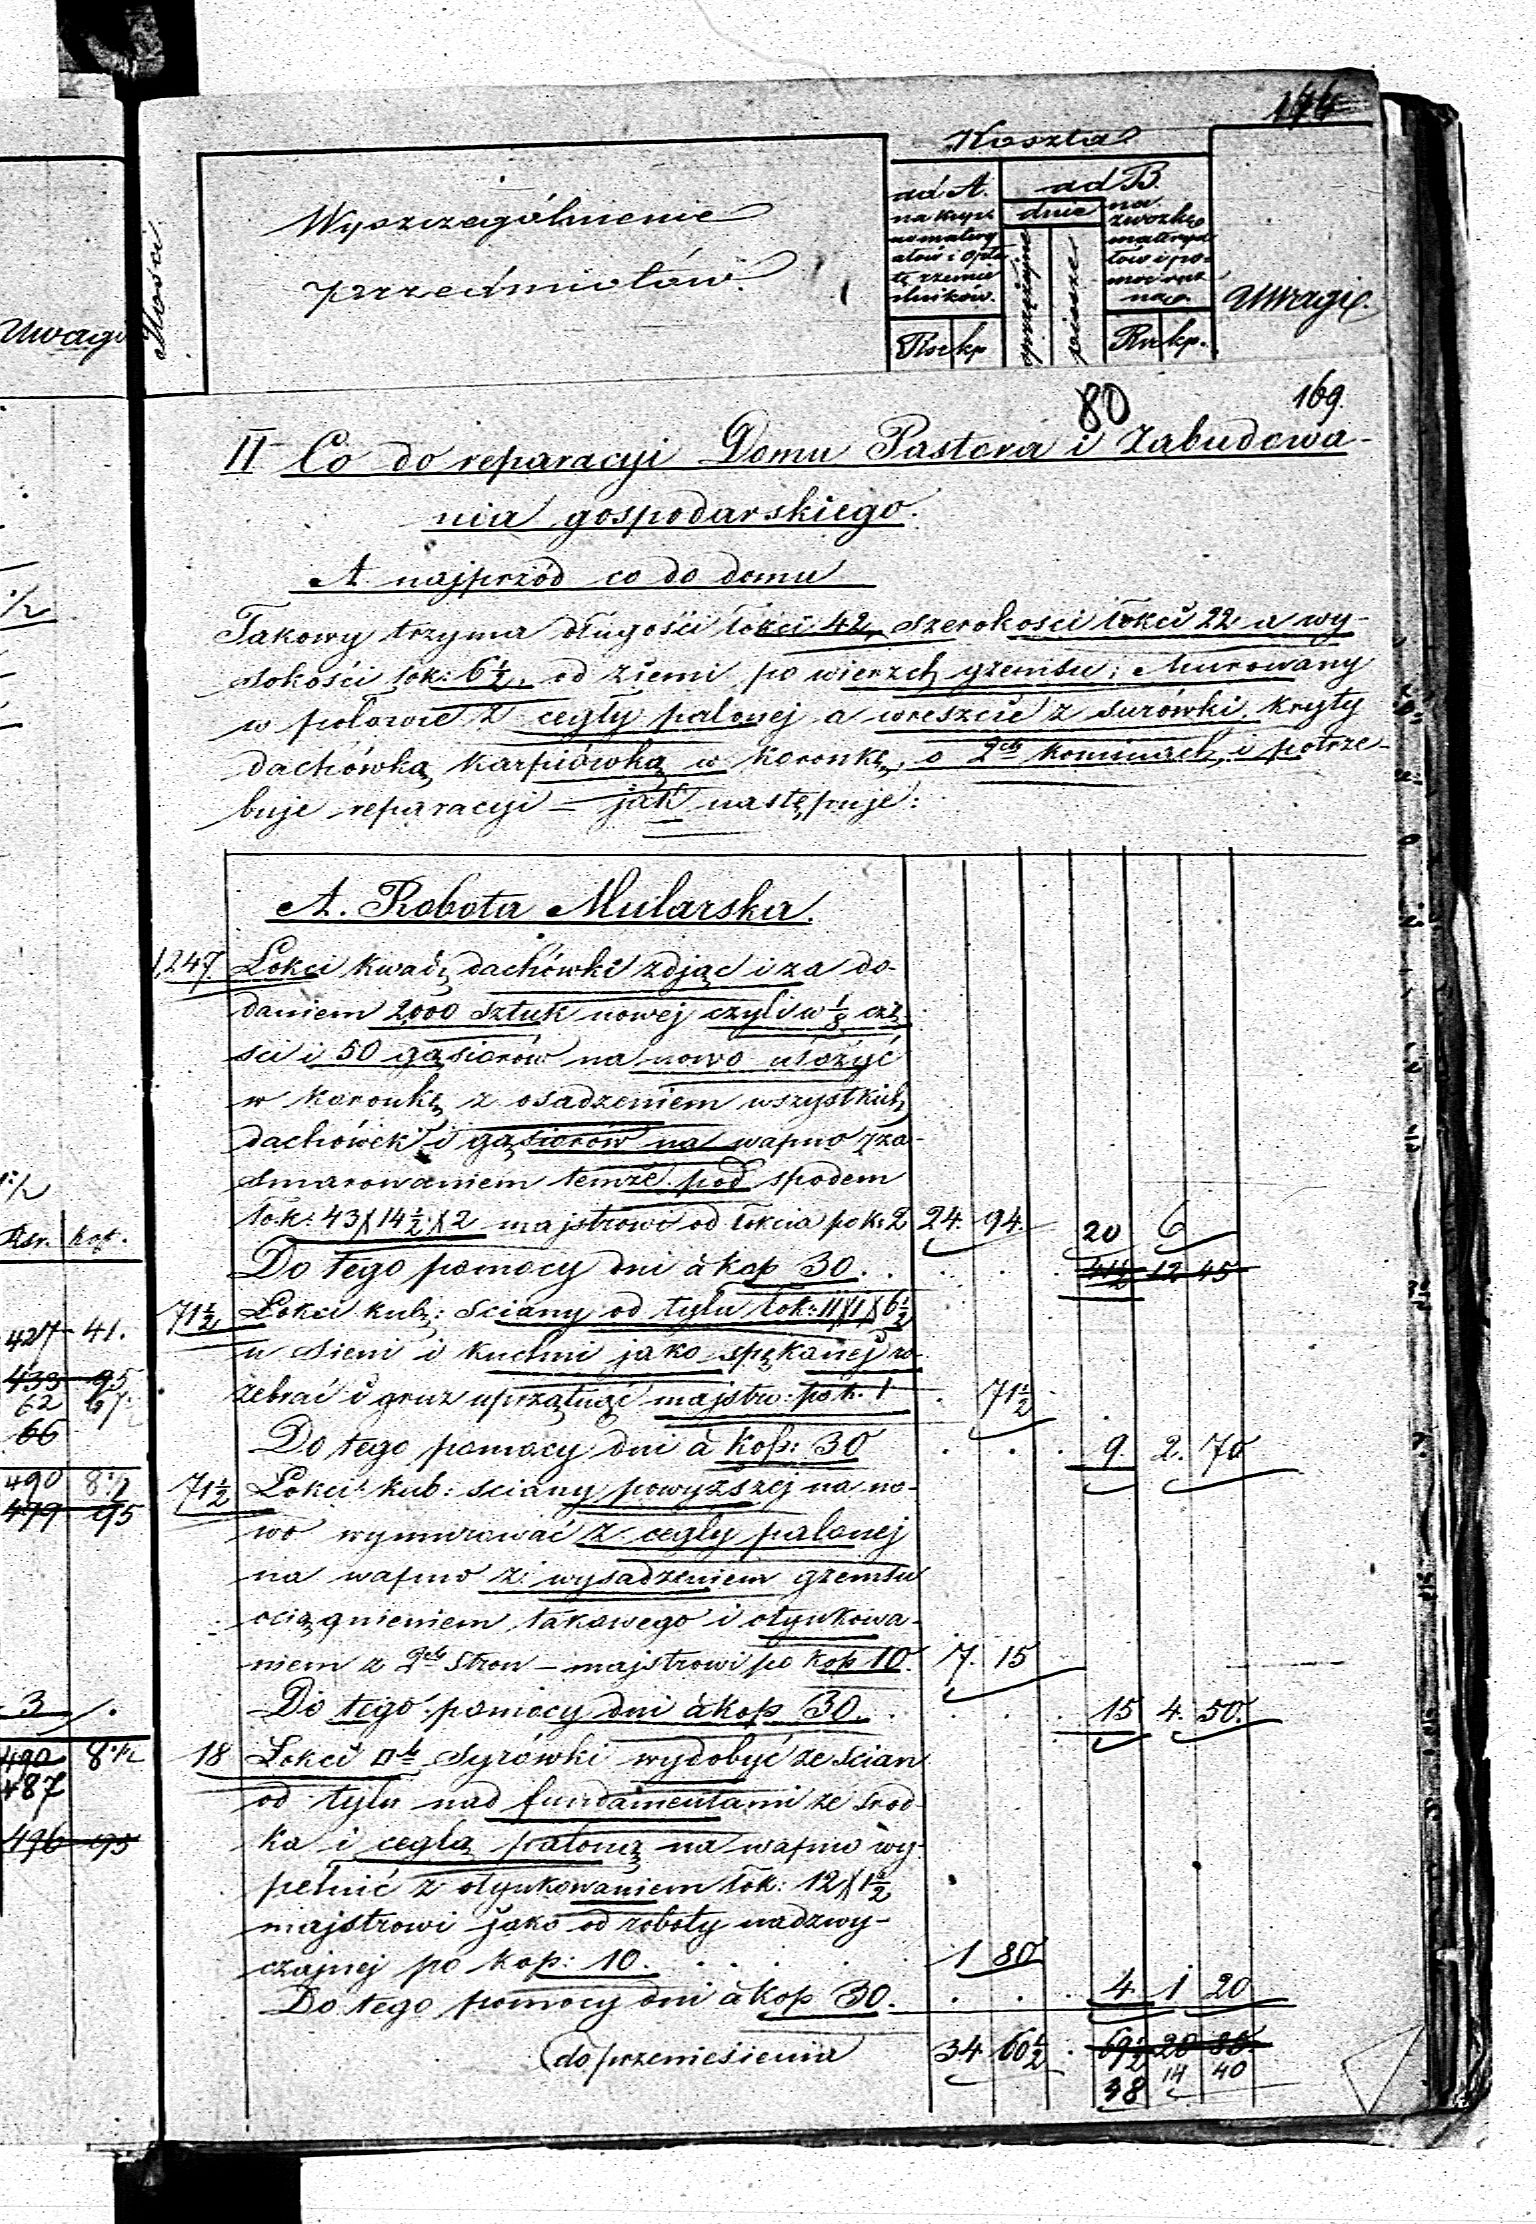 144
Koszta
Ilości
Wyszczególnienie
przedmiotów.
ad A.
na kupno
materyałów i opłatę
rzemieślników.
Rsr kp
ad B.
dnie
sprzężajne
piesze
na
zwózkę
materyałów
i pomoc
ręczną
Rsr kp.
Uwagi.
Uwagi
80
169.
II Co do reparacyi Domu Pastora i Zabudowa-
nia gospodarskiego.
A. najprzód co do domu
Takowy trzyma długości łokci 42, szerokości łokci 22 a wy-
sokości łok: 6½, od ziemi po wierzch gzemsu; Murowany
w połowie z cegły palonej a wreszcie z surówki, kryty
dachówką karpiówką w koronkę, o 2ch kominach, i potrze-
buje reparacyi – jak następuje:
A. Robota Mularska.
1,247 Łokci kwad: dachówki zdjąć i za do-
daniem 2,000 sztuk nowej czyli w ⅛ czę-
ści i 50 gąsiorów na nowo ułożyć
w koronkę z osadzeniem wszystkich
dachówek i gąsiorów na wapno i za-
smarowaniem temże pod spodem
łok: 43 X 14½ X 2 majstrowi od łokcia po k. 2 24. 94. 20 6
Do tego pomocy dni à kop 30. . . . . 41½ 12 45
71½ Łokci kub: ściany od tyłu łok: 11 X 1 X 6½
w sieni i kuchni jako spękanej ro-
zebrać i gruz uprzątnąć majstro: po k. 1 . 71½
Do tego pomocy dni à kop: 30 . . . 9. 2. 70
71½ Łokci kub: ściany powyższej na no-
wo wymurować z cegły palonej
na wapno z wysadzeniem gzemsu
ociągnieniem takowego i otynkowa-
niem z 2ch stron – majstrowi po kop 10. 7. 15
Do tego pomocy dni à kop 30. . . . . 15 4. 50.
18 Łokci □ch syrówki wydobyć ze ścian
od tyłu nad fundamentami ze środ-
ka i cegłą paloną na wapno wy-
pełnić z otynkowaniem łok: 12 X 1½
majstrowi jako od roboty nadzwy-
czajnej po kop: 10. . . . . . 1 80
Do tego pomocy dni à kop 30. . . . 4 1 20
do przeniesienia 34. 60½ . 69½ 20 85
48 14 40
Rsr. kop.
427 41.
433 95
62 67
66
490 8½
499 95
3 .
490 8½
487
496 95